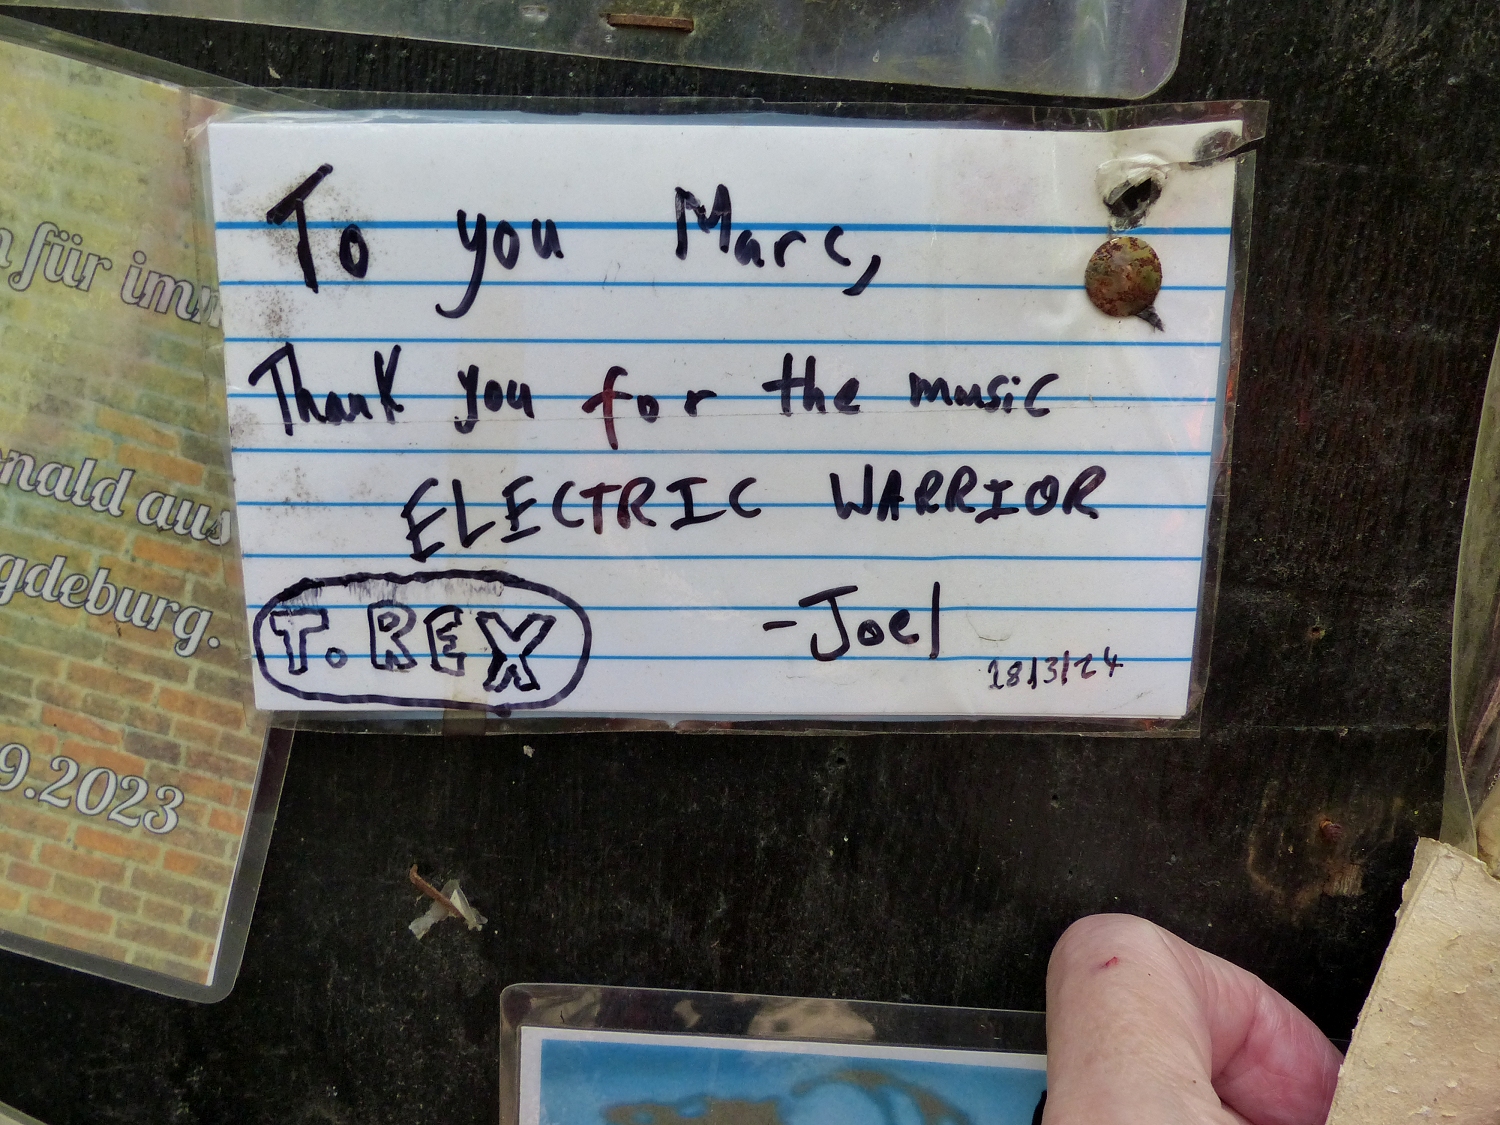 To you Marc,
Thank you for the music
ELECTRIC WARRIOR
T. REX
-Joel
18/3/24
für
nald aus
gdeburg.
9.2023